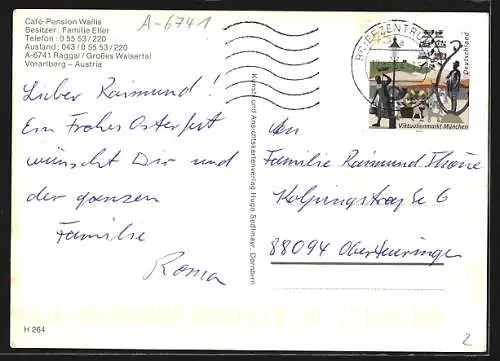 Café-Pension Wallis
Besitzer: Familie Eller
Telefon: 0 55 53 / 220
Ausland: 043 / 0 55 53 / 220
A-6741 Raggal / Großes Walsertal
Vorarlberg – Austria
A-6741
BRIEFZENTRUM
Deutschland
Viktualienmarkt München
Lieber Raimund!
Ein Frohes Osterfest
wünscht Dir und
der ganzen
Familie
Roma
Kunst- und Ansichtskartenverlag Hugo Sedlmayr, Dornbirn
An
Familie Raimund Thoue
Kolpingstraße 6
88094 Oberteuringen
H 264
2